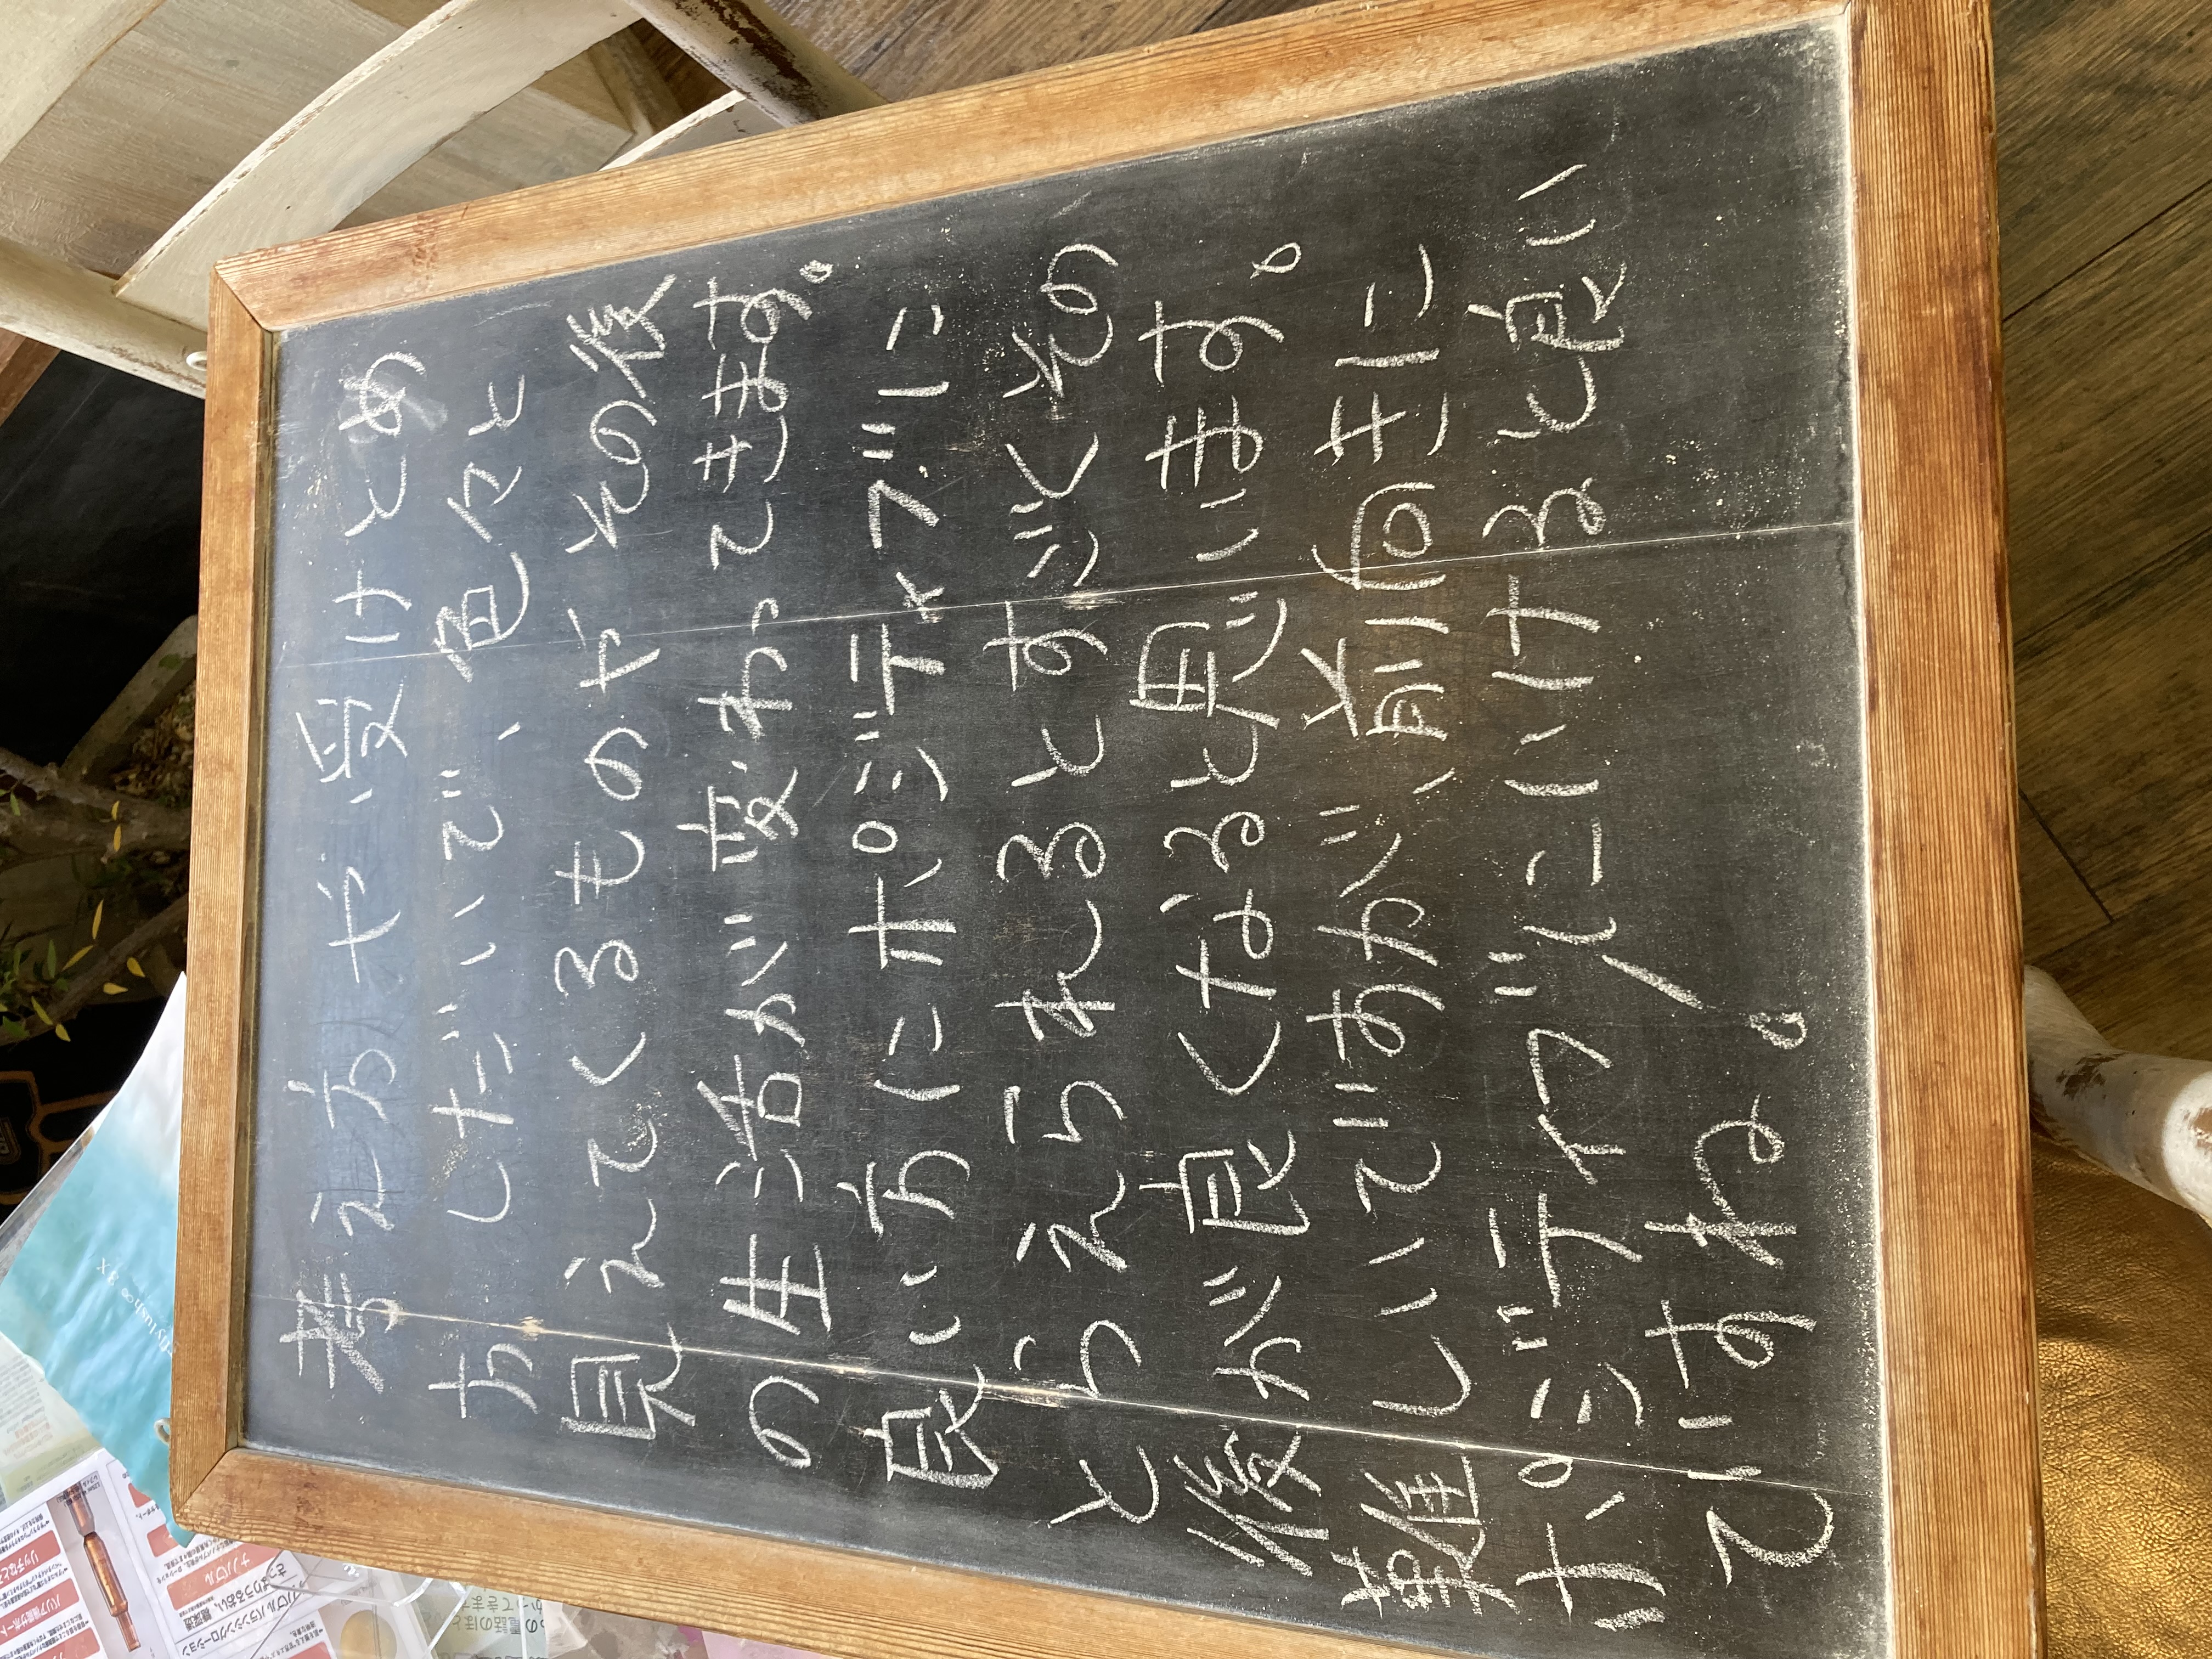 考え方や受けとめ
方しだいで、色々と
見えてくるものやその後
の生活が変わってきます。
良い方にポジティブに
とらえられるとすごくその
後が良くなると思います。
難しいですが、前向きに
ポジティブにいけると良い
ですね。
バリア機能サポート